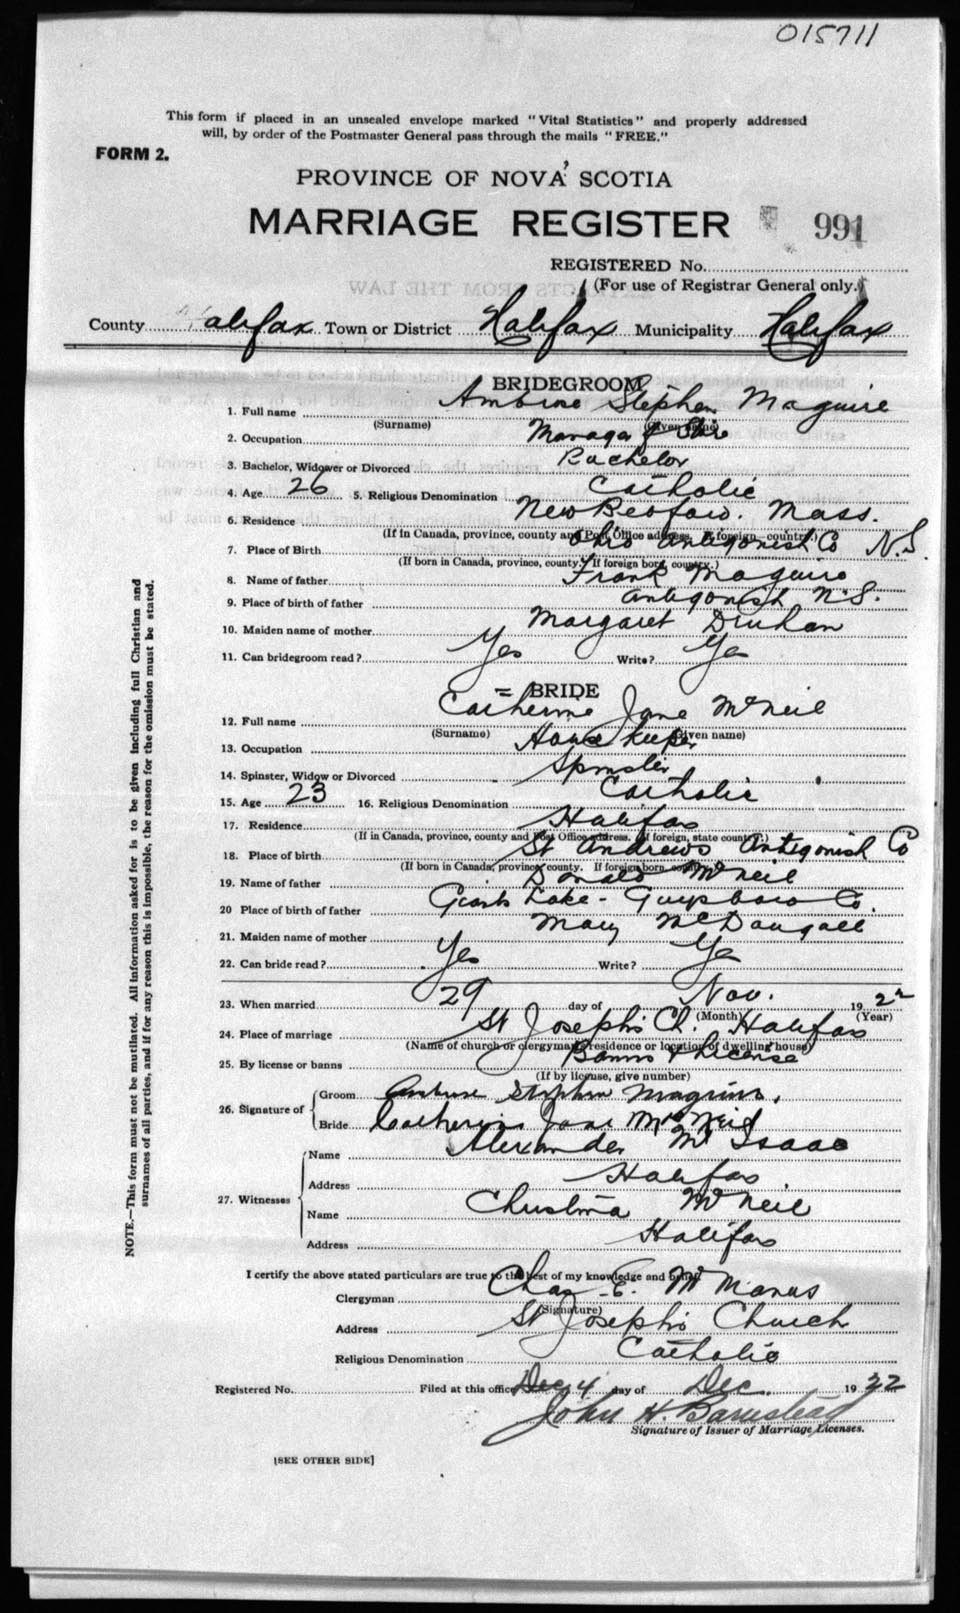 015711
This form if placed in an unsealed envelope marked "Vital Statistics" and properly addressed
will, by order of the Postmaster General pass through the mails "FREE."
FORM 2.
PROVINCE OF NOVA SCOTIA
MARRIAGE REGISTER 991
REGISTERED No.
(For use of Registrar General only.)
County Halifax Town or District Halifax Municipality Halifax
BRIDEGROOM
1. Full name Ambrose Stephen Maguire
(Surname) (Given name)
2. Occupation Manager of Store
3. Bachelor, Widower or Divorced Bachelor
4. Age 26 5. Religious Denomination Catholic
6. Residence New Bedford. Mass.
(If in Canada, province, county and Post Office address. If foreign country.)
7. Place of Birth Ohio Antigonish Co N.S.
(If born in Canada, province, county. If foreign born, country.)
8. Name of father Frank Maguire
9. Place of birth of father Antigonish N.S.
10. Maiden name of mother Margaret Druhan
11. Can bridegroom read? Yes Write? Yes
= BRIDE
12. Full name Catherine Jane McNeil
(Surname) (Given name)
13. Occupation House keeper
14. Spinster, Widow or Divorced Spinster
15. Age 23 16. Religious Denomination Catholic
17. Residence Halifax
(If in Canada, province, county and Post Office address. If foreign, state country.)
18. Place of birth St Andrews Antigonish Co
(If born in Canada, province, county. If foreign born, country.)
19. Name of father Donald McNeil
20 Place of birth of father Giants Lake - Guysboro Co.
21. Maiden name of mother Mary McDougall
22. Can bride read? Yes Write? Yes
23. When married 29 day of Nov. 1922
(Month) (Year)
24. Place of marriage St Joseph's Ch. Halifax
(Name of church or clergyman's residence or location of dwelling house)
25. By license or banns Banns & License
(If by license, give number)
26. Signature of Groom Ambrose Stephen Maguire.
Bride Catherine Jane McNeil
27. Witnesses Name Alexander McIsaac
Address Halifax
Name Christina McNeil
Address Halifax
I certify the above stated particulars are true to the best of my knowledge and belief.
Clergyman Chas. E. McManus
(Signature)
Address St Joseph's Church
Religious Denomination Catholic
Registered No. Filed at this office Dec 4 day of Dec. 1922
John H. Barnstead
Signature of Issuer of Marriage Licenses.
[SEE OTHER SIDE]
NOTE.—This form must not be mutilated. All information asked for is to be given including full Christian and
surnames of all parties, and if for any reason this is impossible, the reason for the omission must be stated.